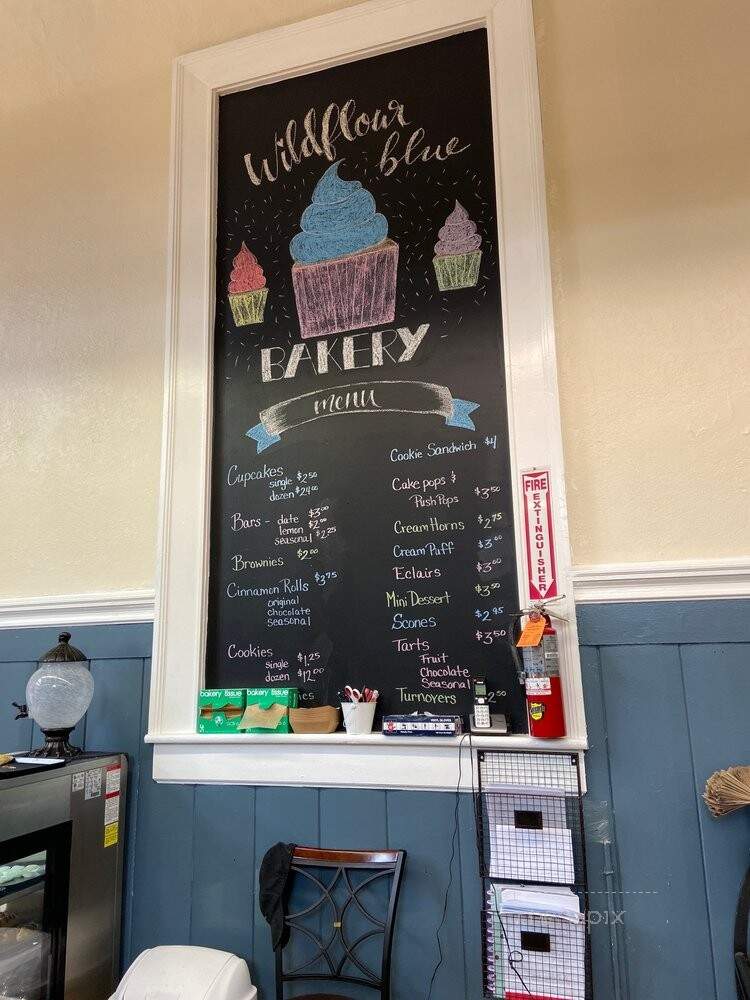 Wildflour
blue
BAKERY
menu
Cupcakes
single $2.50
dozen $24.00
Bars - date $3.00
lemon $2.00
seasonal $2.25
Brownies $2.00
Cinnamon Rolls $3.75
original
chocolate
seasonal
Cookies
single $1.25
dozen $12.00
Cookie Sandwich $4
Cake pops &
Push Pops $3.50
Cream Horns $2.75
Cream Puff $3.00
Eclairs $3.00
Mini Dessert $3.50
Scones $2.95
Tarts $3.50
Fruit
Chocolate
Seasonal
Turnovers
FIRE
EXTINGUISHER
bakery tissue
bakery tissue
VINYL GLOVES